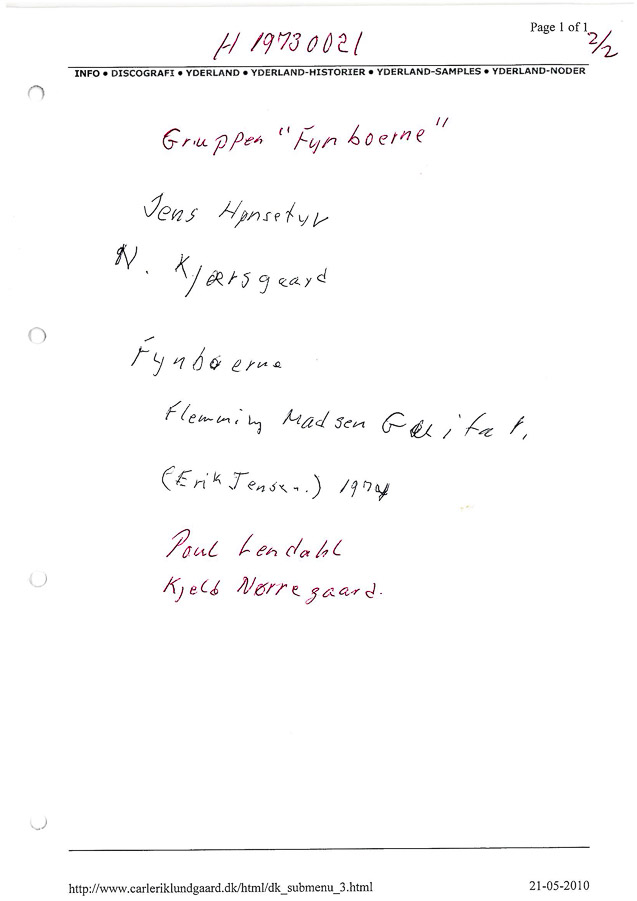 Page 1 of 1
H 19730021
2/2
INFO • DISCOGRAFI • YDERLAND • YDERLAND-HISTORIER • YDERLAND-SAMPLES • YDERLAND-NODER
Gruppen "Fynboerne"
Jens Hønsetyv
N. Kjærsgaard
Fynboerne
Flemming Madsen
(Erik Jensen.) 197
Poul Lendahl
Kjeld Nørregaard.
http://www.carleriklundgaard.dk/html/dk_submenu_3.html
21-05-2010